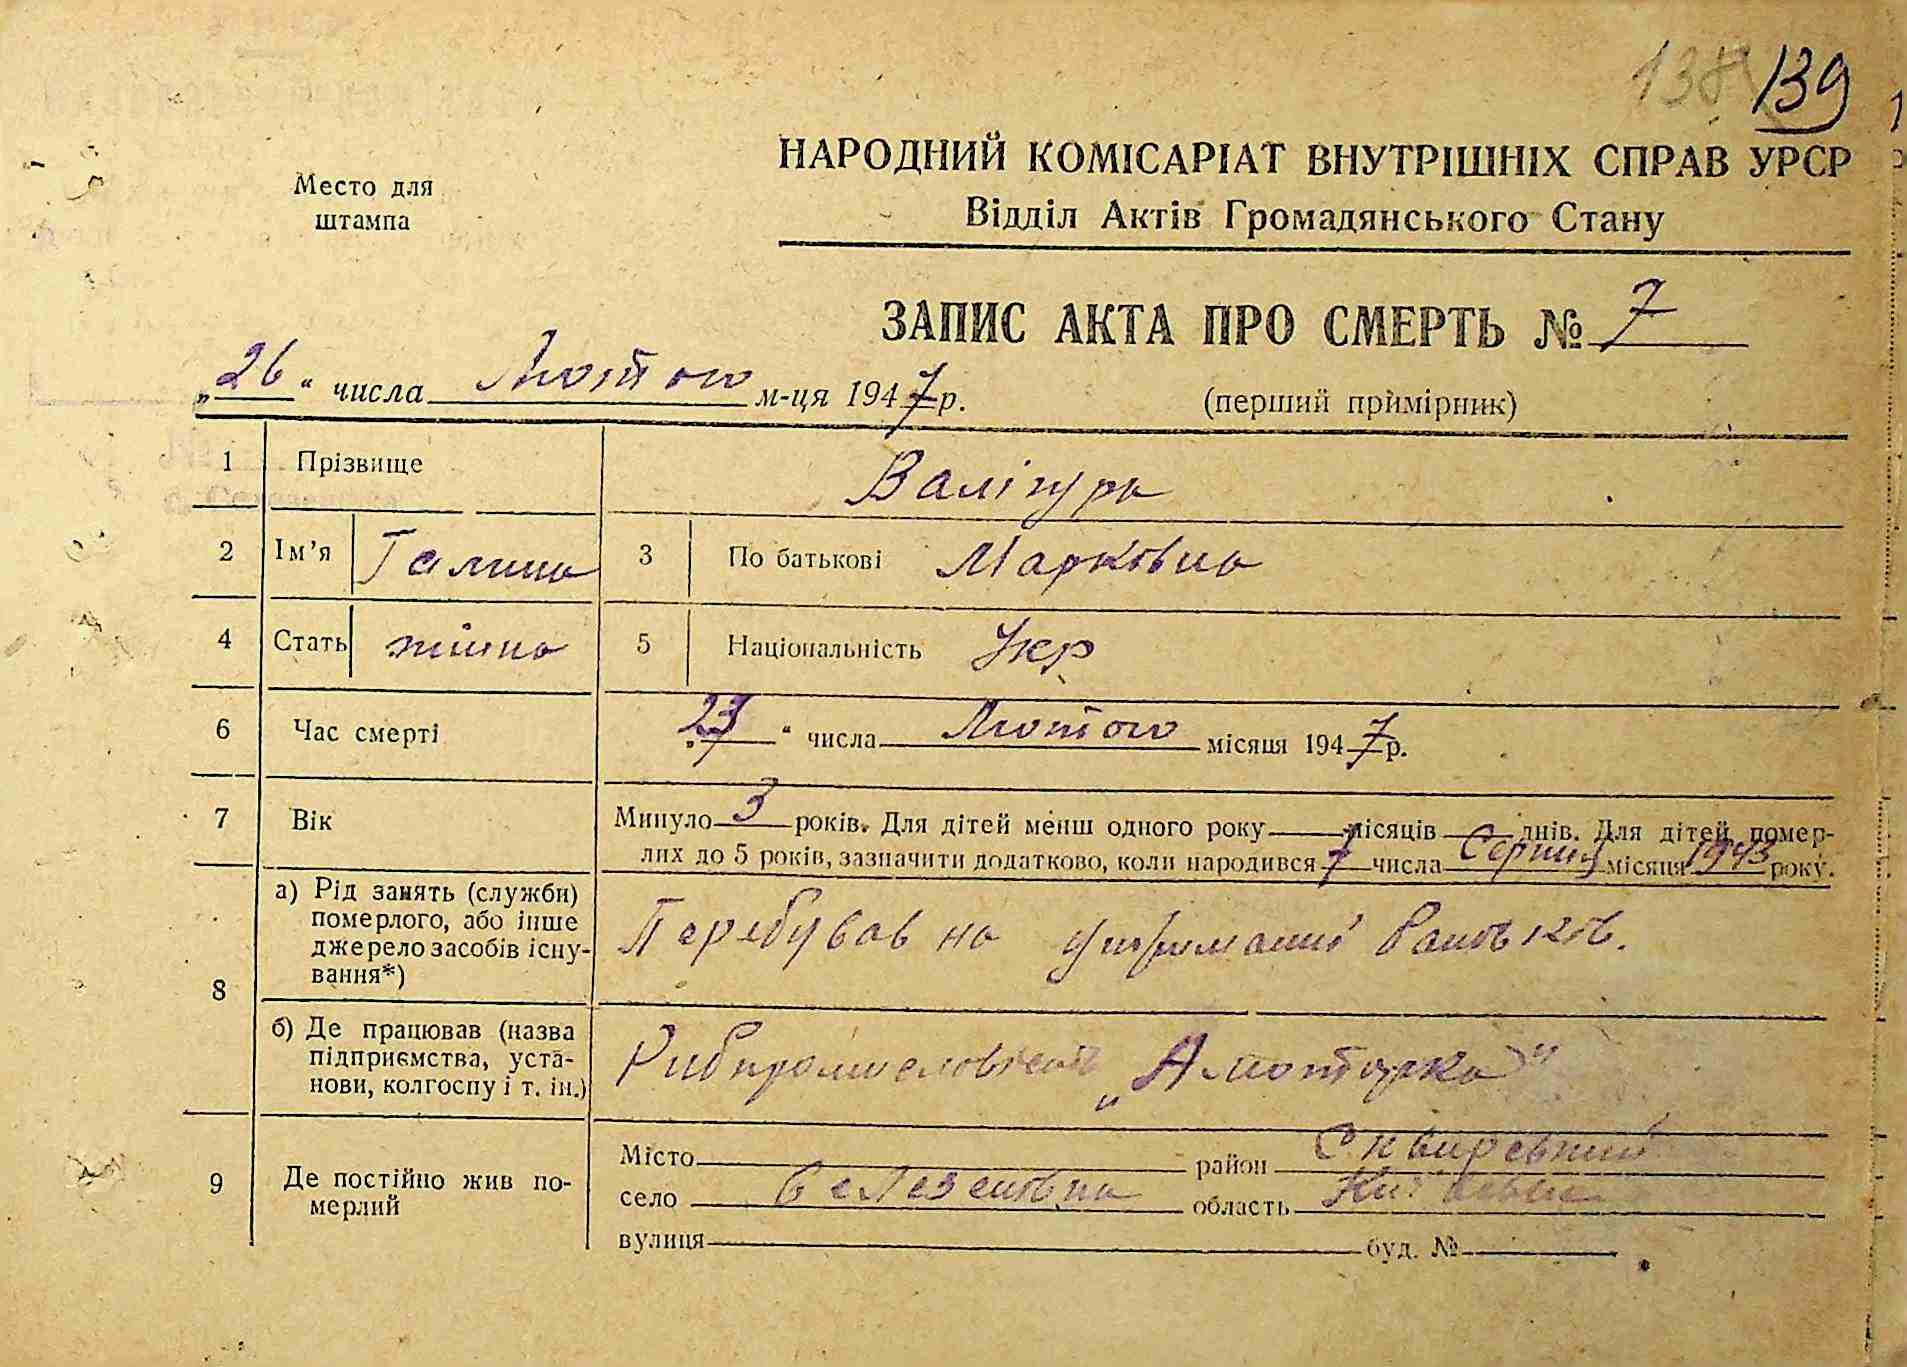 138 139
Место для
штампа
НАРОДНИЙ КОМІСАРІАТ ВНУТРІШНІХ СПРАВ УРСР
Відділ Актів Громадянського Стану
ЗАПИС АКТА ПРО СМЕРТЬ № 7
„26“ числа Лютого м-ця 1947 р.
(перший примірник)
1 Прізвище Валігура
2 Ім'я Галина 3 По батькові Марковна
4 Стать жіноча 5 Національність Укр
6 Час смерті „23“ числа Лютого місяця 1947 р.
7 Вік Минуло 3 років. Для дітей менш одного року місяців днів. Для дітей, помер-
лих до 5 років, зазначити додатково, коли народився 7 числа Серпня місяця 1943 року.
8 а) Рід занять (служби)
померлого, або інше
джерело засобів існу-
вання*)
Перебував на утриманні
б) Де працював (назва
підприємства, уста-
нови, колгоспу і т. ін.)
9 Де постійно жив по-
мерлий
Місто район Сквирський
село Селезенівка область Київська
вулиця буд. №